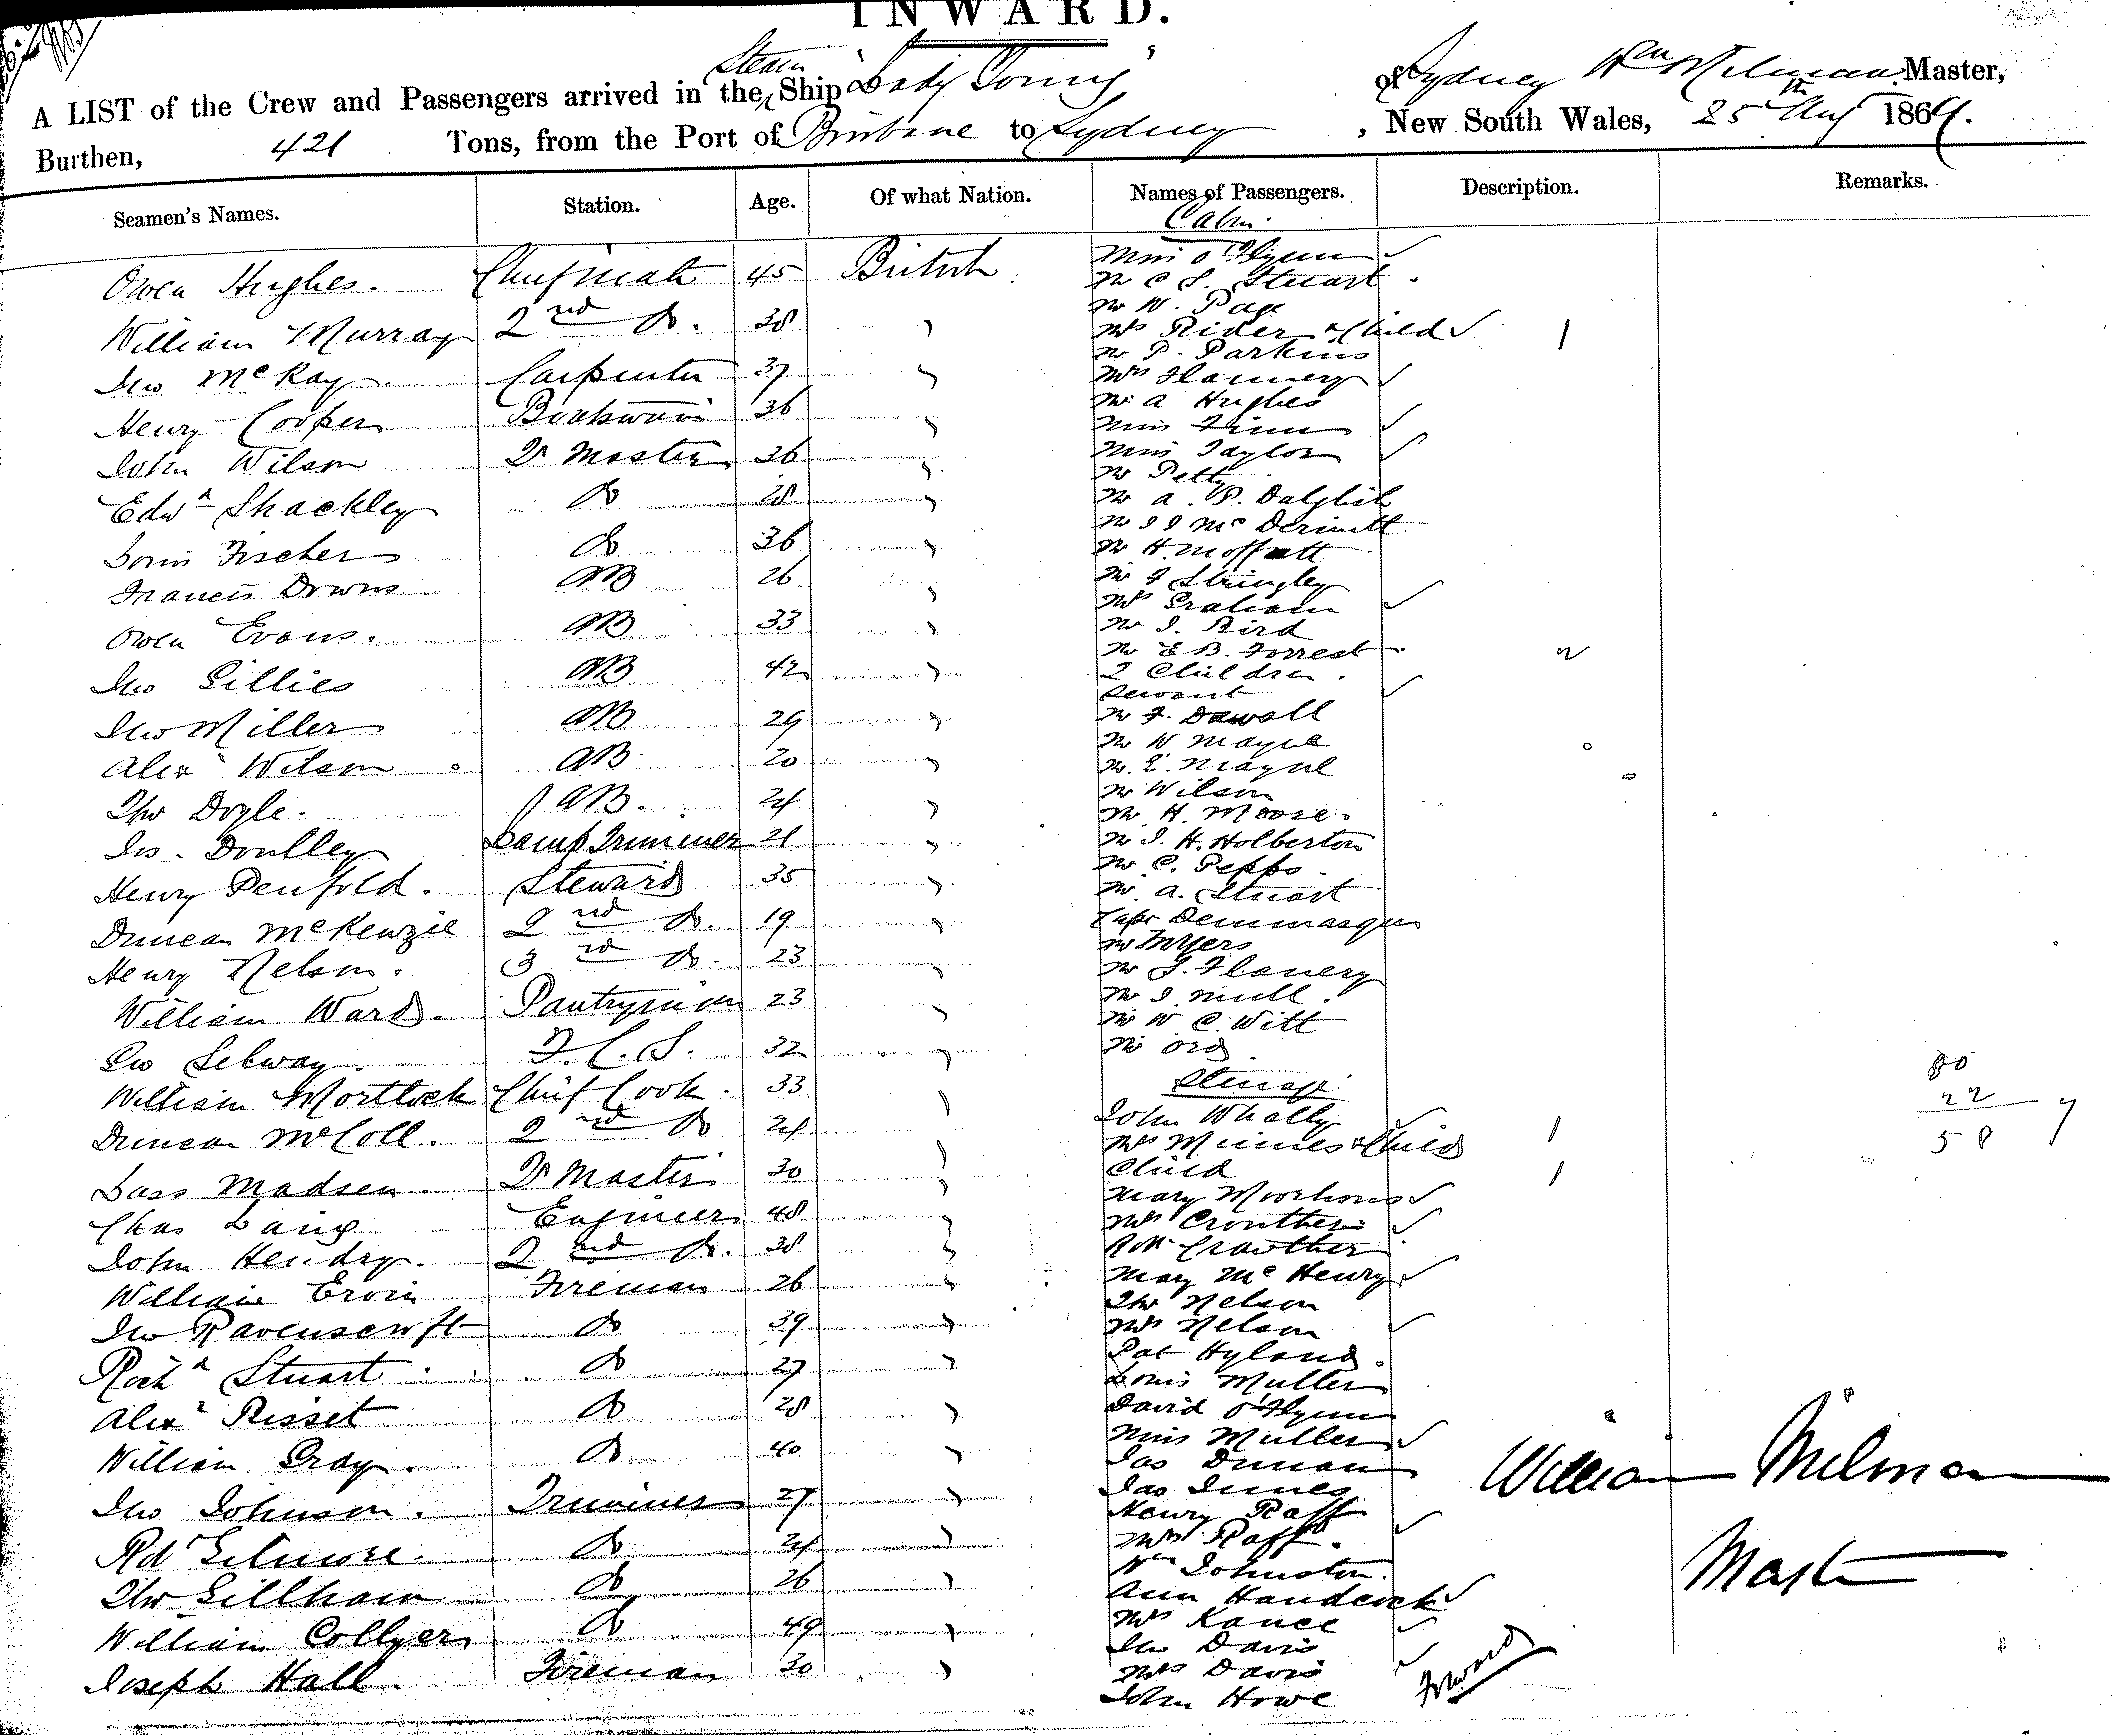 INWARD.
A LIST of the Crew and Passengers arrived in the Steam Ship "Lady Young" of Sydney Wm Milman Master,
Burthen, 421 Tons, from the Port of Brisbane to Sydney, New South Wales, 25th Aug 1864.
Seamen's Names. Station. Age. Of what Nation. Names of Passengers. Description. Remarks.
Cabin
Owen Hughes. Chief Mate 45 British
William Murray 2nd Do. 38 "
Jno McKay Carpenter 37 "
Henry Cooper Boatswain 36 "
John Wilson Qr Master 36 "
Edwd Shackley Do 28 "
Louis Fischer Do 36 "
Francis Downs AB 26 "
Owen Evans. AB 33 "
Jno Gillies AB 42 "
Jno Miller AB 29 "
Alexr Wilson AB 20 "
Tho Doyle. AB. 24 "
Lamp Trimmer 21 "
Henry Penfold. Steward 35 "
Duncan McKenzie 2nd Do. 19 "
Henry Nelson. 3rd Do. 23 "
William Ward. Pantryman 23 "
Selway F.C.S. 32 "
William Mortlock Chief Cook. 33 "
Duncan McColl. 2nd Do 24 "
Lass Madsen Qr Master 30 "
Chas Laing Engineer 48 "
John Hendry. 2nd Do. 38 "
William Ervin Fireman 26 "
Jno Ravenscroft Do 39 "
Richd Stuart Do 27 "
Alexr Risset Do 28 "
William Gray. Do 40 "
Jno Johnson. Trimmer 27 "
Rd Gilmore. Do 24 "
Tho Gillham Do 26 "
William Collyer Do 49 "
Joseph Hall. Fireman 30 "
Miss O'Flynn
Mr C S. Stuart
Mr W. Page
Mrs Rider & Child 1
Mr P. Parkins
Mrs Flannery
Mr A Hughes
Miss Finn
Miss Taylor
Mr Petty
Mr A. P. Dalglish
Mr J J McDermott
Mr H. Moffatt
Mr J Stringley
Mrs Graham
Mr J. Bird
Mr E B. Forrest
2 Children. 2
Servant
Mr F. Dowall
Mr W Mayne
Mr. E. Mayne
Mr Wilson
Mr H. Moore.
Mr J. H. Holberton
Mr C. Pepps.
Mr A. Stuart
Capt
Mr Myers
Mr J. Flanery
Mr J. Mull.
Mr W C. Witt
Mr Ord
Steerage
John Whally
Mrs Minnes & Child 1
Child 1
Mary Moorhouse
Mrs Crowther
Crowther
Mary McHenry
Tho Nelson
Mrs Nelson
Pat Hyland.
Louis Muller
David O'Flynn
Miss Muller
Jas Duncan
Jas Innes
Henry Raff
Mrs Raff.
Wm Johnston.
Ann Handcock
Mrs Kance
Jno Davis
Mrs Davis
John Howe
Forward
80
22
58 7
William Milman
Master